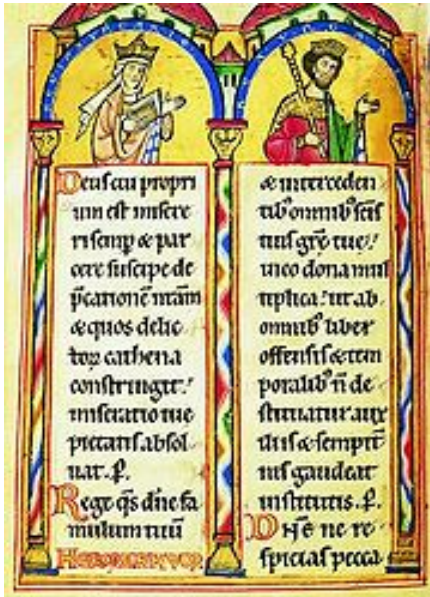 Deus cui propri
um est misere
ri semp & par
cere suscipe de
p̄cationē nr̄am
& quos delic
toꝝ cathena
constringit.
miseratio tue
pietatis absol
uat. P.
Rege q̄s dn̄e fa
mulum tuū
& interceden
tib' omnib' scīs
tuis gr̄e tue
in eo dona mul
tiplica. ut ab
omnib' liber
offensis & tem
poralib' n̄ de
stituatur aux
iliis & sempit̄
nis gaudeat
institutis. P.
Dn̄e ne re
spicias pecca